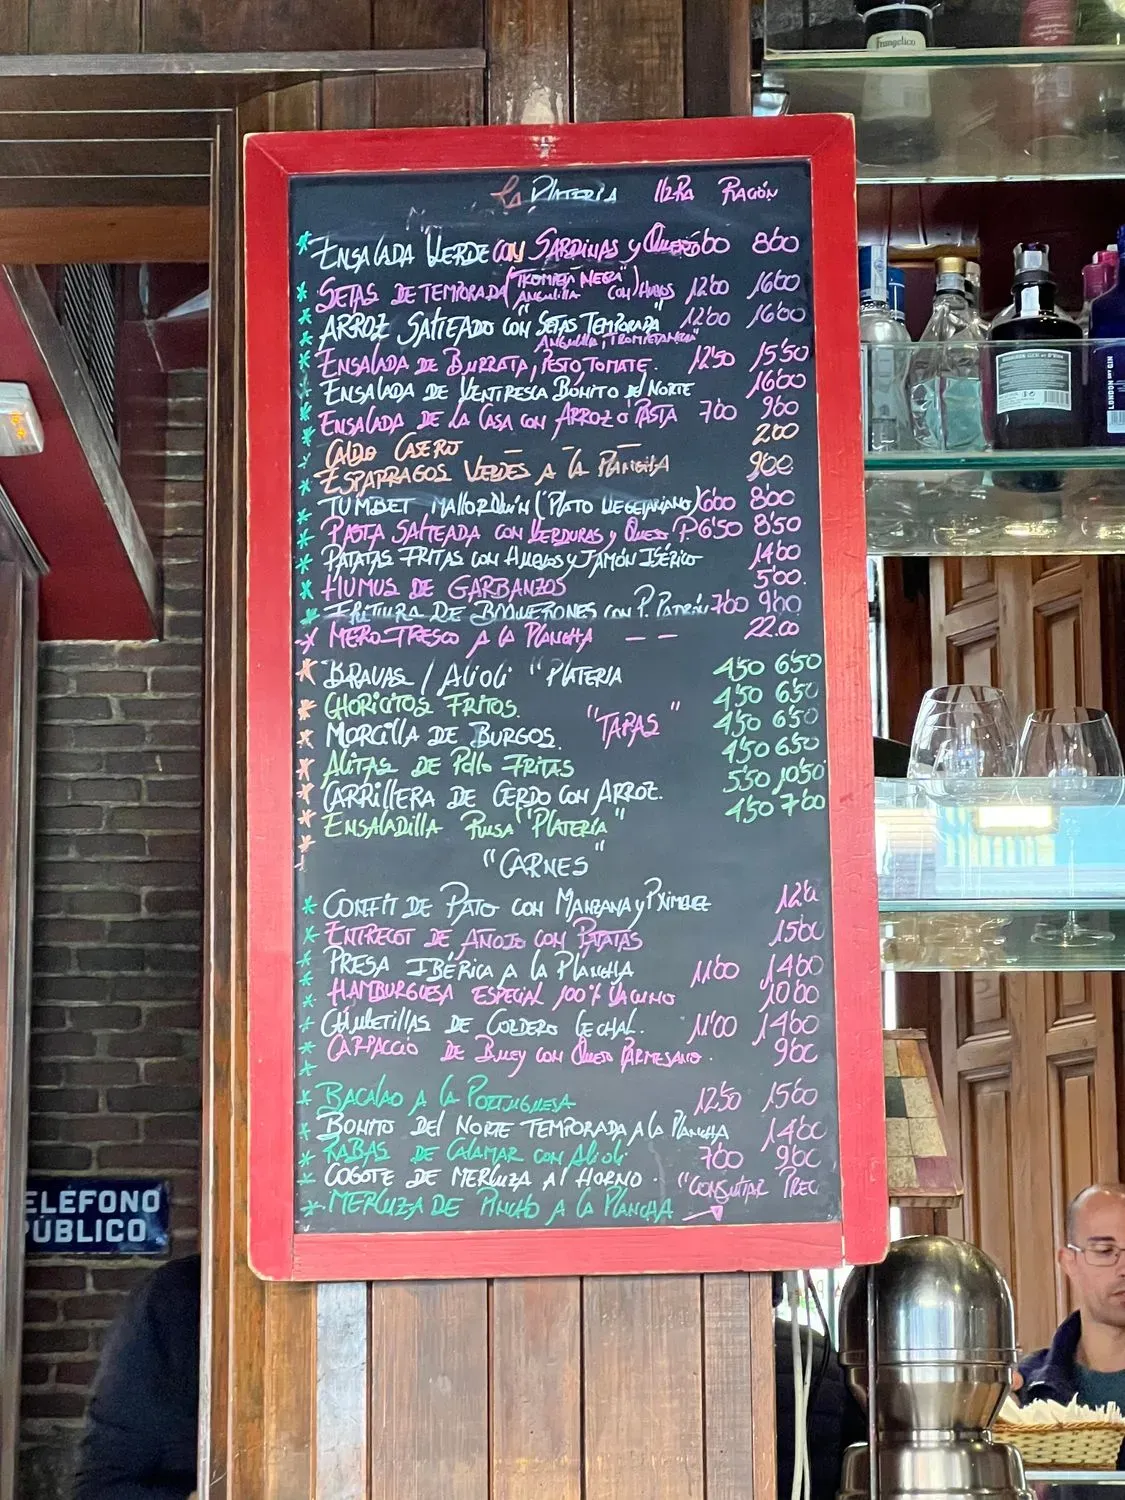 frangelico
La PLATERIA 1/2RA RACIÓN
* ENSALADA VERDE CON SARDINAS y QUESO 6'00 8'00
* SETAS DE TEMPORADA ("TROMPETA NEGRA" ANGUILLA CON HUEVOS) 12'00 16'00
* ARROZ SALTEADO CON "SETAS TEMPORADA" 12'00 16'00
* ENSALADA DE BURRATA, PESTO, TOMATE. 12'50 15'50
ENSALADA DE VENTRESCA BONITO DEL NORTE 16'00
* ENSALADA DE LA CASA CON ARROZ O PASTA 7'00 9'00
* CALDO CASERO — — 2'00
* ESPARRAGOS VERDES A LA PLANCHA 9'00
* TUMBET MALLORQUIN (PLATO VEGETARIANO) 6'00 8'00
* PASTA SALTEADA CON VERDURAS y QUESO P. 6'50 8'50
* PATATAS FRITAS CON HUEVOS y JAMÓN IBÉRICO 14'00
* HUMUS DE GARBANZOS 5'00.
* FRITURA DE BOQUERONES CON P. PADRÓN 7'00 9'00
* MERO FRESCO A LA PLANCHA — — 22.00
* BRAVAS / Alioli "PLATERIA 4'50 6'50
* CHORICITOS FRITOS. 4'50 6'50
* MORCILLA DE BURGOS. "TAPAS" 4'50 6'50
* ALITAS DE Pollo FRITAS 4'50 6'50
* CARRILLERA DE CERDO CON ARROZ. 5'50 10'50
* ENSALADILLA RUSA "PLATERÍA" 4'50 7'00
"CARNES"
* CONFIT DE PATO CON MANZANA y P XIMENEZ
* ENTRECOT DE AÑOJO CON PATATAS 15'00
* PRESA IBÉRICA A LA PLANCHA 11'00 14'00
* HAMBURGUESA ESPECIAL 100% VACUNO 10'00
* CHULETILLAS DE CORDERO LECHAL. 11'00 14'00
* CARPACCIO DE BUEY CON QUESO PARMESANO. 9'00
* BACALAO A LA PORTUGUESA 12'50 15'00
* BONITO DEL NORTE TEMPORADA A LA PLANCHA 14'00
* RABAS DE CALAMAR CON Alioli 7'00 9'00
* COGOTE DE MERLUZA AL HORNO. "CONSULTAR PREC
* MERLUZA DE PINCHO A LA PLANCHA
LONDON
ELÉFONO
PÚBLICO